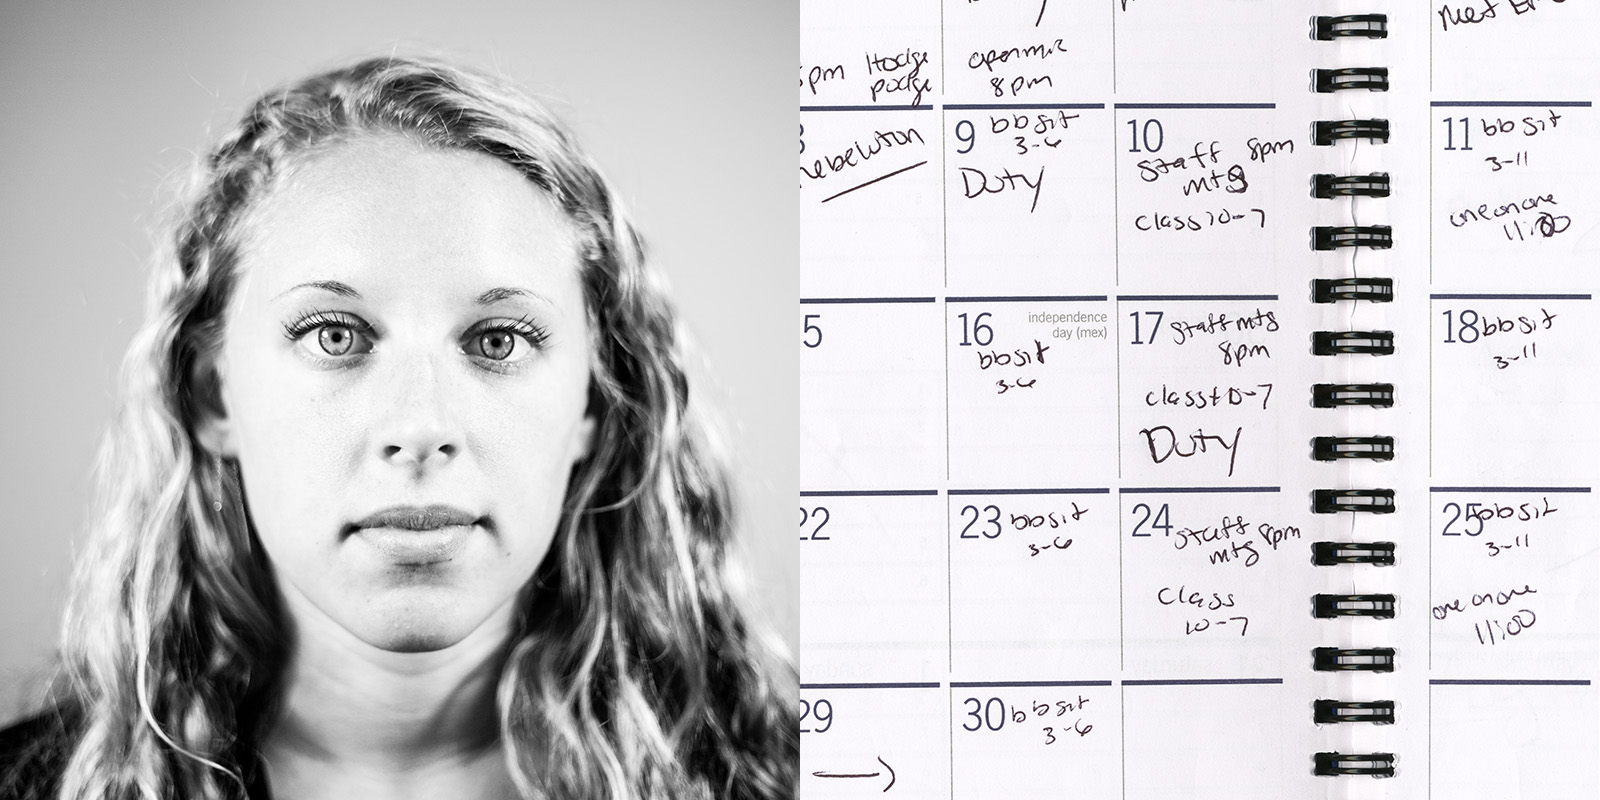 5pm Hodge
podge
openmic
8pm
meet
9 bbsit
3-6
Duty
10
staff 8pm
mtg
class 10-7
11 bbsit
3-11
one on one
11:00
5
16 independence
day (mex)
bbsit
3-6
17 staff mtg
8pm
class 10-7
Duty
18 bbsit
3-11
22
23 bbsit
3-6
24 staff 8pm
mtg
class
10-7
25 bbsit
3-11
one on one
11:00
29
30 bbsit
3-6